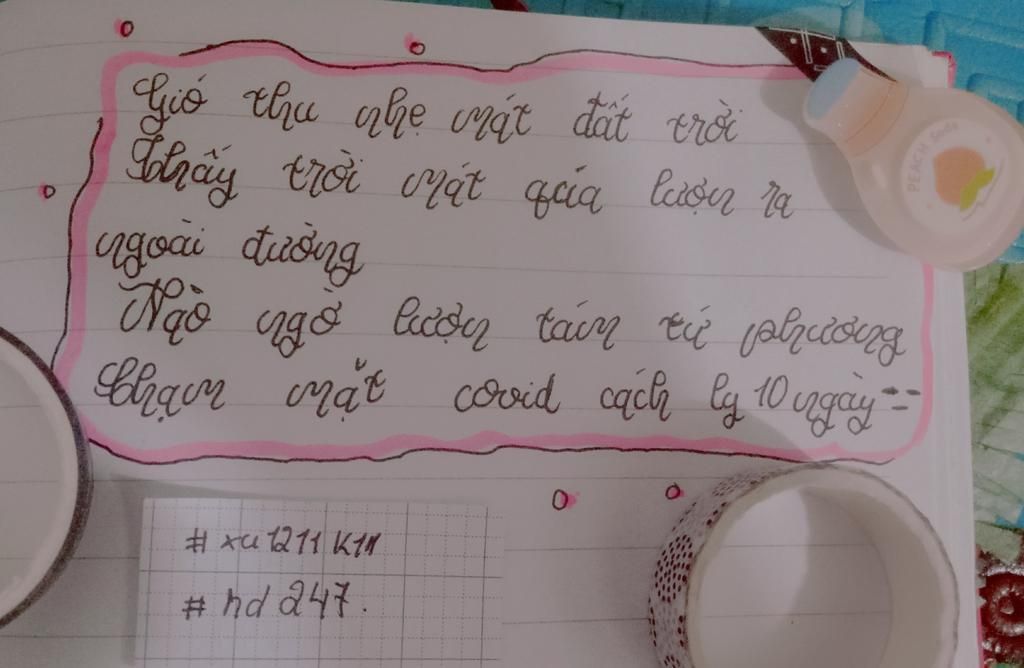 Gió thu nhẹ mát đất trời
Thấy trời mát qúa lượn ra
ngoài đường
Ngờ ngờ lượn tán tứ phương
Chạm mặt covid cách ly 10 ngày --
PEACH Soda
# xu1211 k1n
# nd 247.